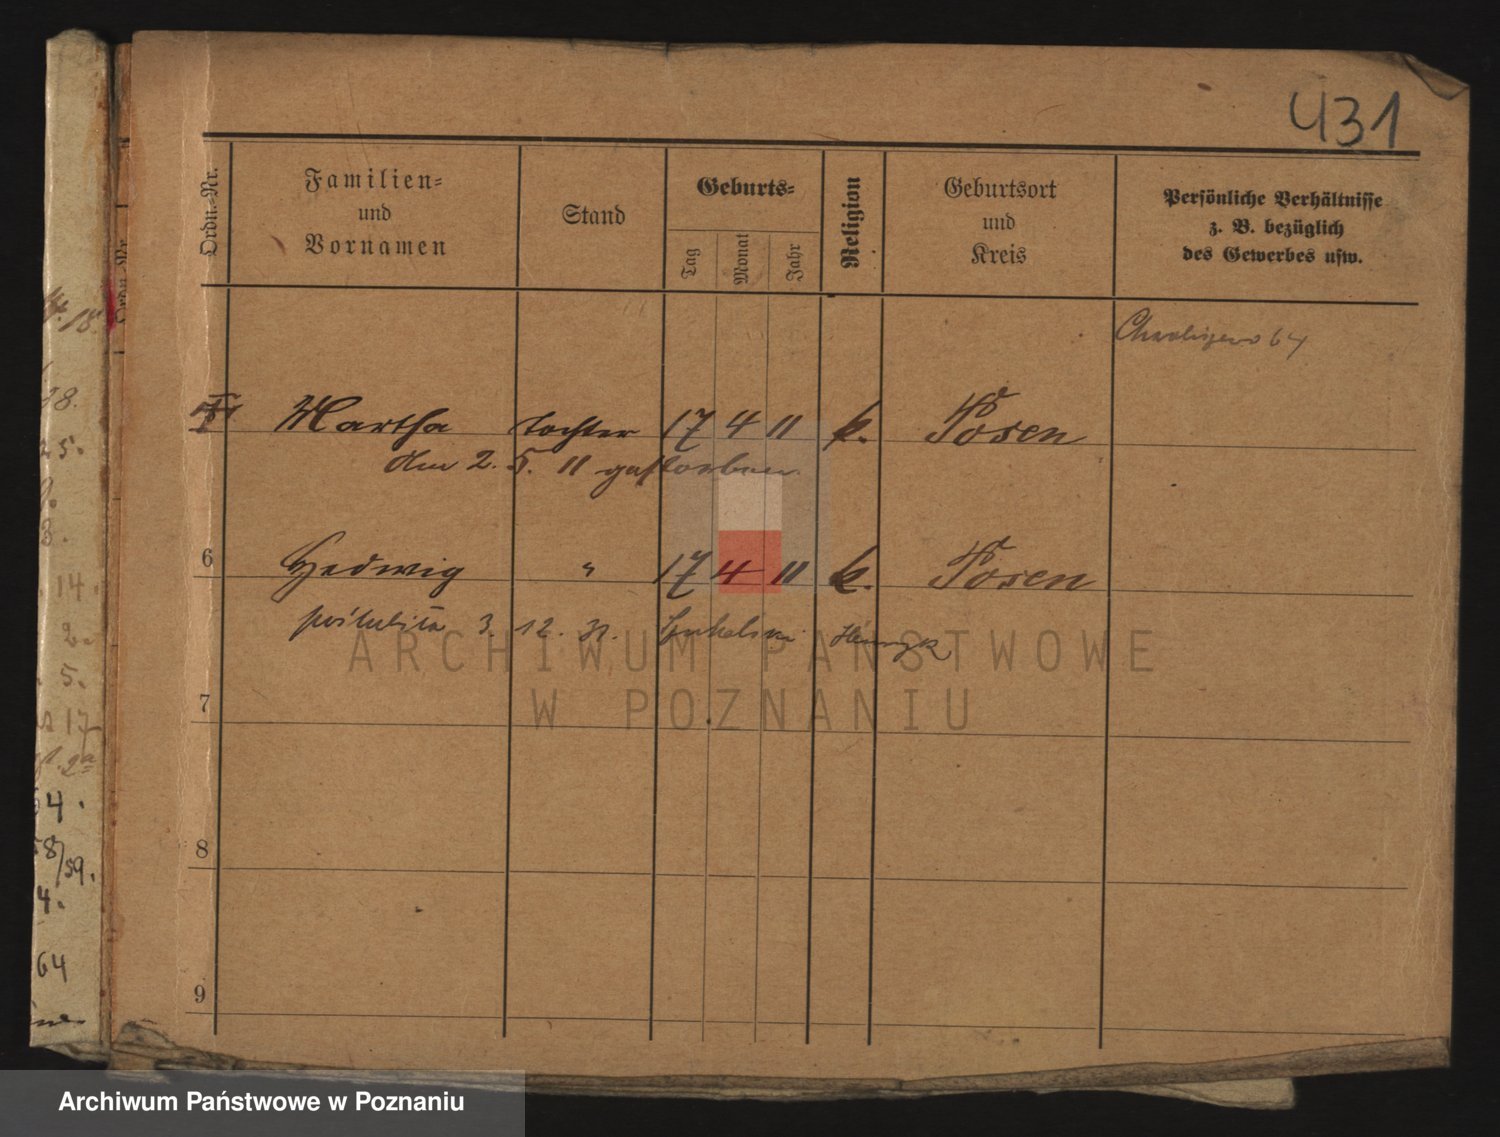 431
Ordn.-Nr.
Familien- und Vornamen
Stand
Geburts-
Tag
Monat
Jahr
Religion
Geburtsort und Kreis
Persönliche Verhältnisse z. B. bezüglich des Gewerbes usw.
64
Martha Tochter 17 4 11 k. Posen
den 2. 5. 11 gestorben.
6 Hedwig " 17 4 11 k. Posen
poślubiła 3. 12. 31. Henryk
7
8
9
ARCHIWUM PAŃSTWOWE
W POZNANIU
Ordn.-Nr.
18.
28.
25.
9.
3.
14.
2.
5.
17
9a
54.
58/59.
4.
64
Archiwum Państwowe w Poznaniu